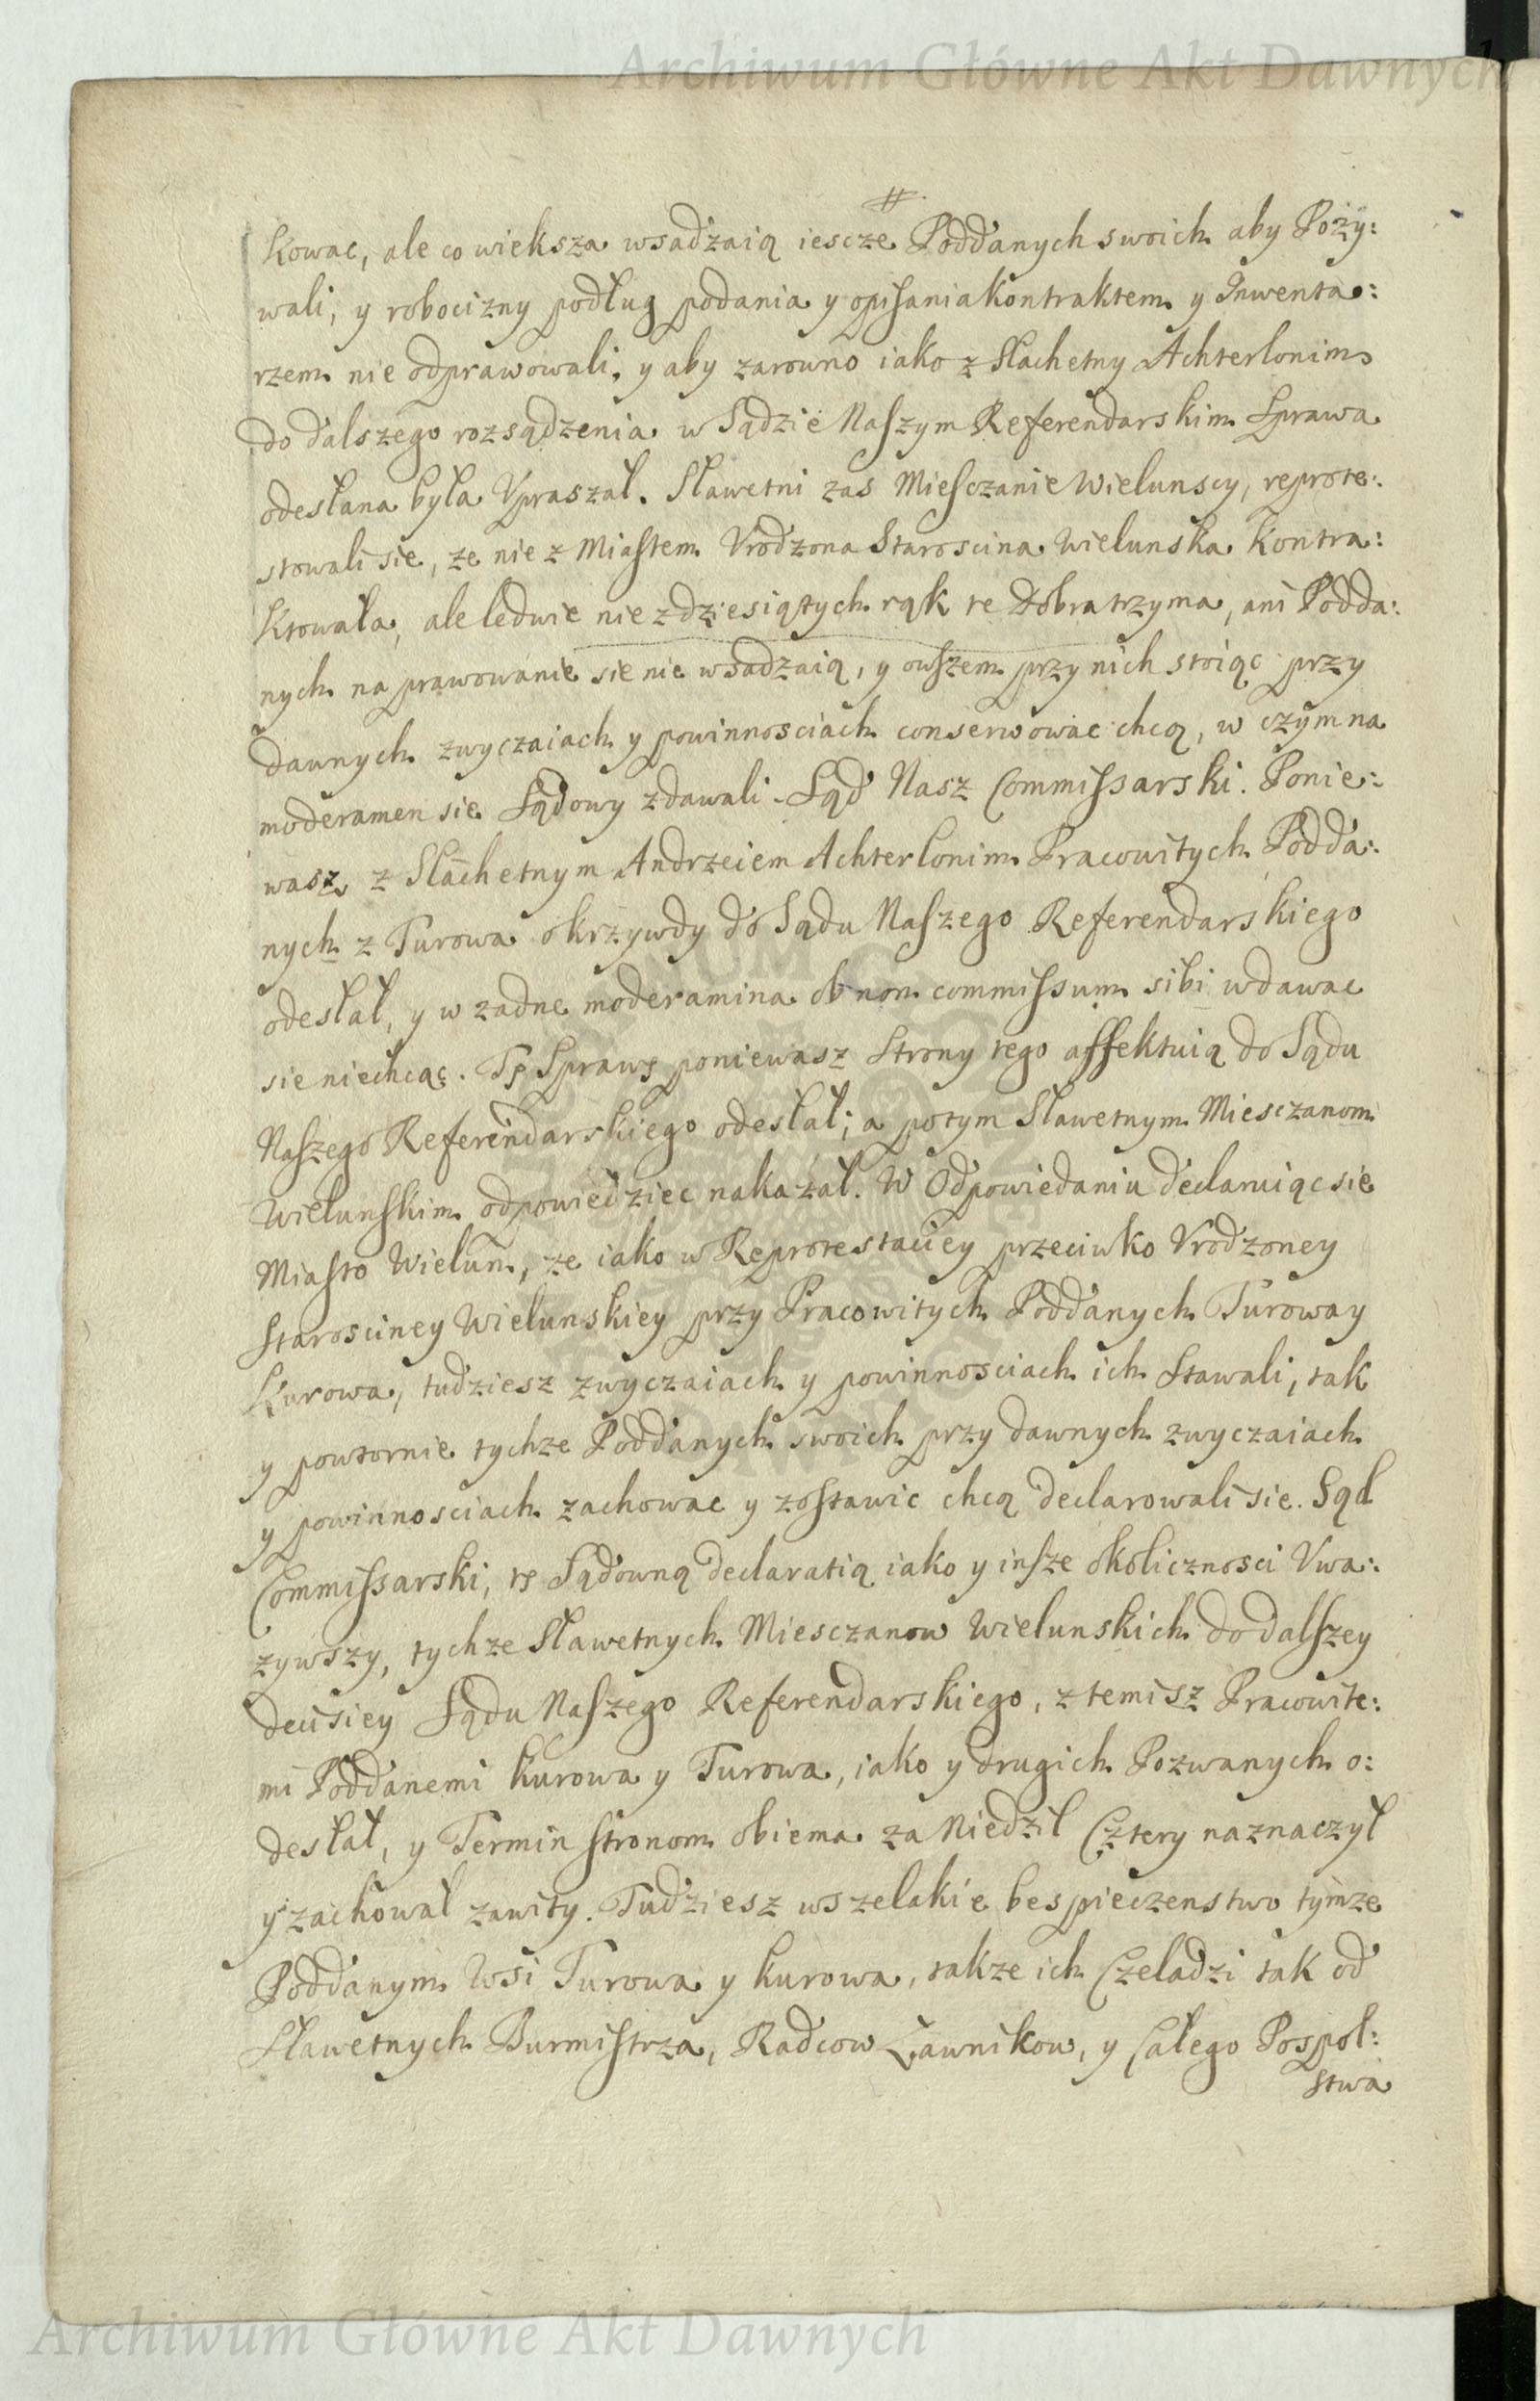 Archiwum Główne Akt Dawnych
#
kowac, ale co wieksza wsadzaią iescze Poddanych swoich aby Poży:
wali, y robocizny podług podania y opisania kontraktem y Inwenta:
rzem nie odprawowali, y aby zarowno iako z Slachetny Achterlonim
do dalszego rozsądzenia w Sądzie Naszym Referendarskim Sprawa
odesłana była Vpraszał. Sławetni zas Miesczanie Wielunscy, reprote:
stowali sie, ze nie z Miastem Vrodzona Starościna Wielunska Kontra:
ktowała, ale ledwie nie z dziesiątych rąk te Dobra trzyma, ani Podda:
nych na prawowanie sie nie wsadzaią, y owszem przy nich stoiąc przy
dawnych zwyczaiach y powinnosciach conserwowac chcą, w czym na
moderamen sie Sądowy zdawali. Sąd Nasz Commissarski. Ponie:
wasz z Slachetnym Andrzeiem Achterlonim Pracowitych Podda:
nych z Turowa o krzywdy do Sądu Naszego Referendarskiego
odesłał, y w zadne moderamina ob non commissum sibi wdawac
sie niechcąc. Tę Sprawę poniewasz Strony tego affektuią do Sądu
Naszego Referendarskiego odesłał; a potym Sławetnym Miesczanom
Wielunskim odpowiedziec nakazał. W Odpowiedaniu declaruiąc sie
Miasto Wielun, ze iako w Reprotestaciey przeciwko Vrodzoney
Starosciney Wielunskiey przy Pracowitych Poddanych Turowa y
Kurowa, tudziesz zwyczaiach y powinnosciach ich Stawali, tak
y powtornie tychze Poddanych swoich przy dawnych zwyczaiach
y powinnosciach zachowac y zostawic chcą declarowali sie. Sąd
Commissarski, tę Sądowną declaratią iako y insze okolicznosci Vwa:
zywszy, tychze Sławetnych Miesczanow Wielunskich do dalszey
decisiey Sądu Naszego Referendarskiego, z temisz Pracowite:
mi Poddanemi Kurowa y Turowa, iako y drugich Pozwanych o:
desłał, y Termin stronom obiema za Niedzil Cztery naznaczył
y zachował zawity. Tudziesz wszelakie bespieczenstwo tymze
Poddanym Wsi Turowa y Kurowa, takze ich Czeladzi tak od
Sławetnych Burmistrza, Radcow Ławnikow, y Całego Pospol:
stwa
Archiwum Główne Akt Dawnych